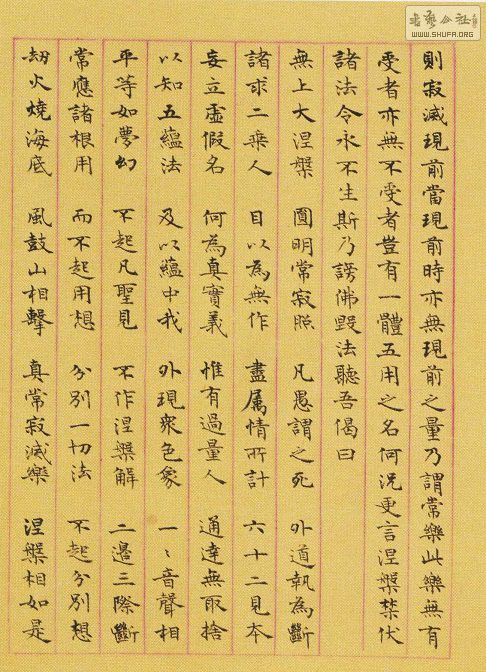 則寂滅現前當現前時亦無現前之量乃謂常樂此樂無有
受者亦無不受者豈有一體五用之名何況更言涅槃禁伏
諸法令永不生斯乃謗佛毀法聽吾偈曰
無上大涅槃 圓明常寂照 凡愚謂之死 外道執為斷
諸求二乘人 目以為無作 盡屬情所計 六十二見本
妄立虛假名 何為真實義 惟有過量人 通達無取捨
以知五蘊法 及以蘊中我 外現眾色象 一々音聲相
平等如夢幻 不起凡聖見 不作涅槃解 二邊三際斷
常應諸根用 而不起用想 分別一切法 不起分別想
劫火燒海底 風鼓山相擊 真常寂滅樂 涅槃相如是
WWW.SHUFA.ORG